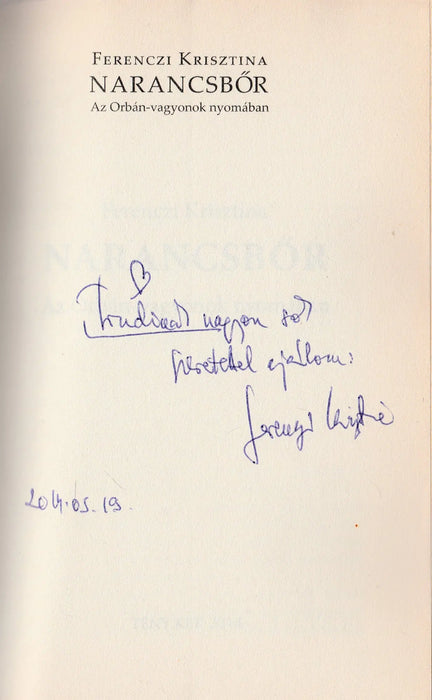 FERENCZI KRISZTINA
NARANCSBŐR
Az Orbán-vagyonok nyomában
Ferenczi Krisztina
NARANCSBŐR
Trudinak nagyon sok
szeretettel ajánlom:
Ferenczi Krisztina
2014.05.19.